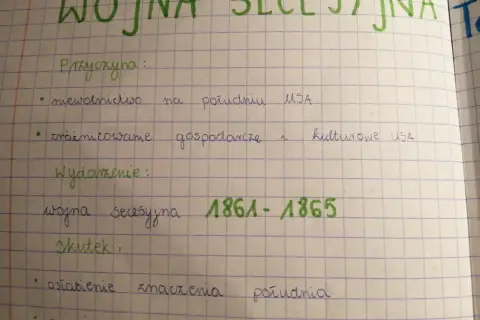 WOJNA SECESYJNA
Przyczyna:
• niewolnictwo na południu USA
• zróżnicowanie gospodarcze i kulturowe USA
Wydarzenie:
wojna secesyjna 1861-1865
Skutek:
• osłabienie znaczenia południa